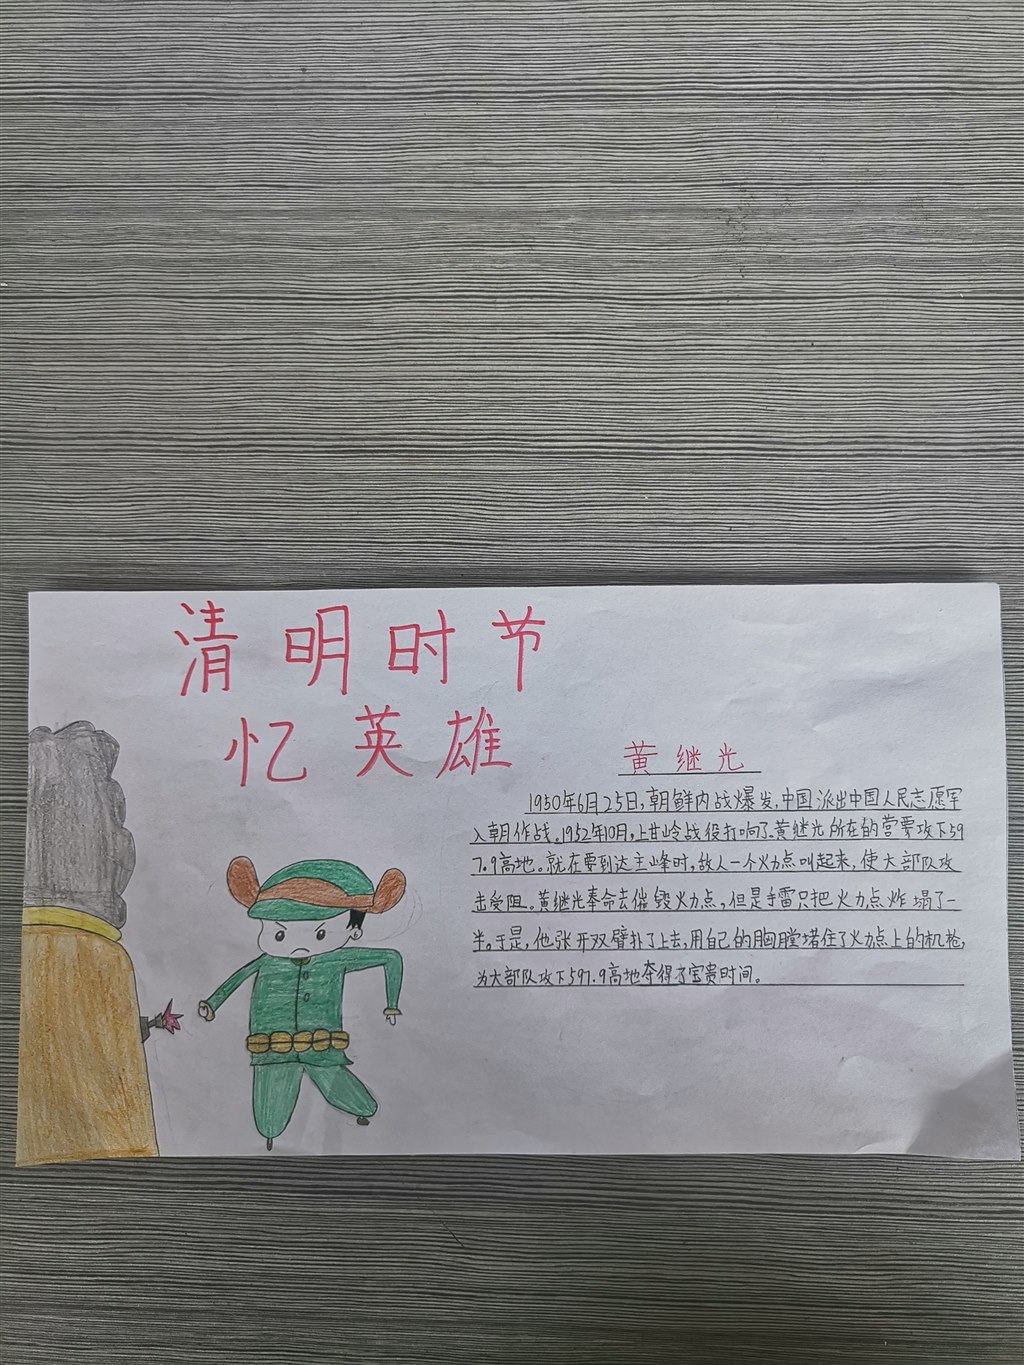 清明时节
忆英雄
黄继光
1950年6月25日,朝鲜内战爆发,中国派出中国人民志愿军
入朝作战。1952年10月,上甘岭战役打响了。黄继光所在的营要攻下59
7.9高地。就在要到达主峰时,敌人一个火力点叫起来,使大部队攻
击受阻。黄继光奉命去催毁火力点,但是手雷只把火力点炸塌了一
半。于是,他张开双臂扑了上去,用自己的胸膛堵住了火力点上的机枪,
为大部队攻下597.9高地夺得了宝贵时间。